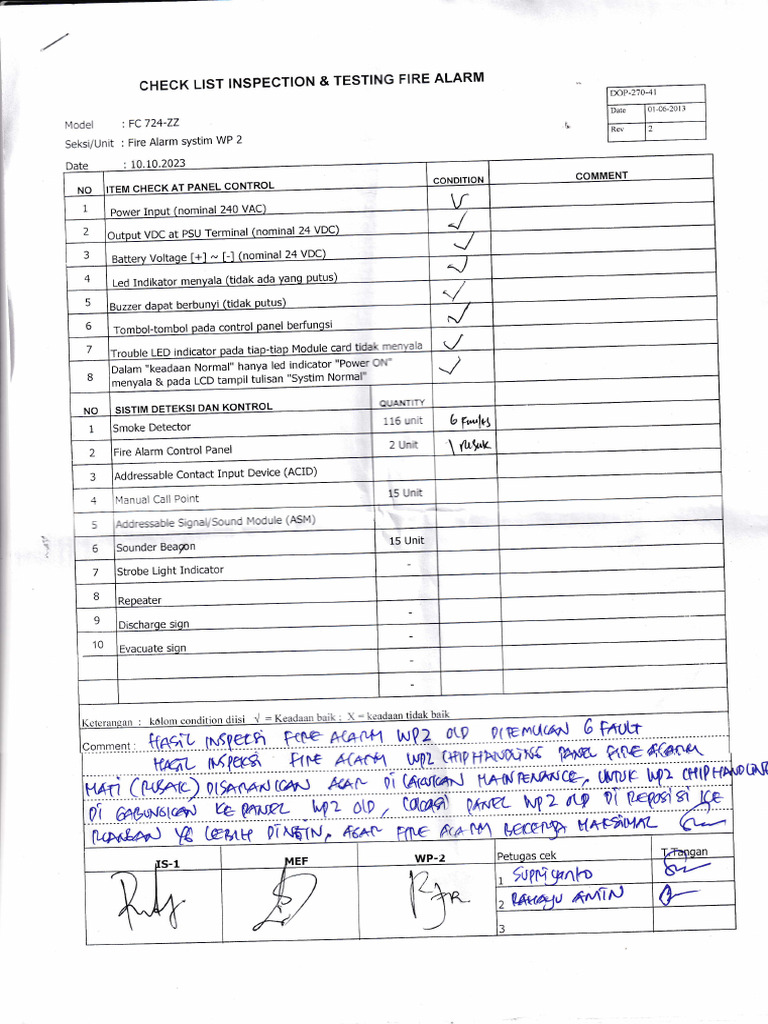 CHECK LIST INSPECTION & TESTING FIRE ALARM
DOP-270-41
Date 01-06-2013
Rev 2
Model : FC 724-ZZ
Seksi/Unit : Fire Alarm systim WP 2
Date : 10.10.2023
NO ITEM CHECK AT PANEL CONTROL CONDITION COMMENT
1 Power Input (nominal 240 VAC) √
2 Output VDC at PSU Terminal (nominal 24 VDC) √
3 Battery Voltage [+] ~ [-] (nominal 24 VDC) √
4 Led Indikator menyala (tidak ada yang putus) √
5 Buzzer dapat berbunyi (tidak putus) √
6 Tombol-tombol pada control panel berfungsi √
7 Trouble LED indicator pada tiap-tiap Module card tidak menyala √
8 Dalam "keadaan Normal" hanya led indikator "Power ON"
menyala & pada LCD tampil tulisan "Systim Normal" √
NO SISTIM DETEKSI DAN KONTROL QUANTITY
1 Smoke Detector 116 unit 6 Faults
2 Fire Alarm Control Panel 2 Unit 1 rusak
3 Addressable Contact Input Device (ACID)
4 Manual Call Point 15 Unit
5 Addressable Signal/Sound Module (ASM)
6 Sounder Beacon 15 Unit
7 Strobe Light Indicator -
8 Repeater
9 Discharge sign -
10 Evacuate sign -
-
-
Keterangan : kolom condition diisi √ = Keadaan baik ; X = keadaan tidak baik
Comment : HASIL INSPEKSI FIRE ALARM WP2 OLD DITEMUKAN 6 FAULT
HASIL INSPEKSI FIRE ALARM WP2 CHIPHANDLING PANEL FIRE ALARM
MATI (RUSAK) DISARANKAN AGAR DI LAKUKAN MAINTENANCE, UNTUK WP2 CHIPHANDLING
DI GABUNGKAN KE PANEL WP2 OLD, LOKASI PANEL WP2 OLD DI REPOSISI KE
RUANGAN YG LEBIH DINGIN, AGAR FIRE ALARM BEKERJA MAKSIMAL
IS-1 MEF WP-2 Petugas cek T.Tangan
1 Supriyanto
2 RAHAYU AMIN
3